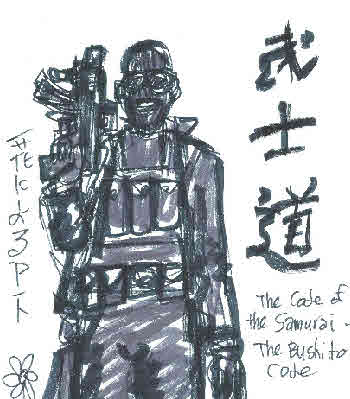 武士道
The Code of
the Samurai -
The Bushido
Code
花によるアート